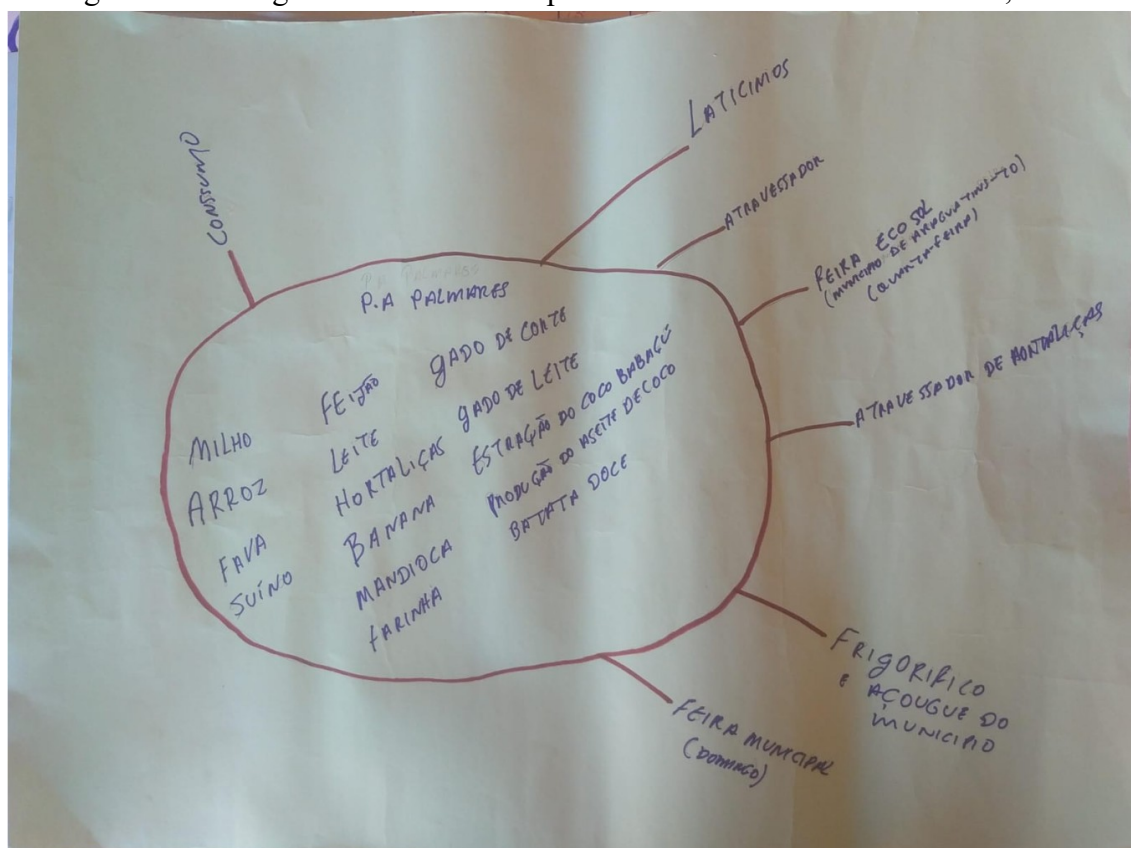 CONSUMO
LATICINIOS
ATRAVESSADOR
FEIRA ECOSOL
(MUNICIPIO DE ARAGUATINS-TO)
(QUARTA-FEIRA)
ATRAVESSADOR DE HORTALIÇAS
FRIGORIFICO
E AÇOUGUE DO
MUNICIPIO
FEIRA MUNICIPAL
(DOMINGO)
P.A PALMARES
P.A PALMARES
MILHO
ARROZ
FAVA
SUÍNO
FEIJÃO
LEITE
HORTALIÇAS
BANANA
MANDIOCA
FARINHA
GADO DE CORTE
GADO DE LEITE
ESTRAÇÃO DO COCO BABAÇÚ
PRODUÇÃO DO ASEITE DE COCO
BATATA DOCE